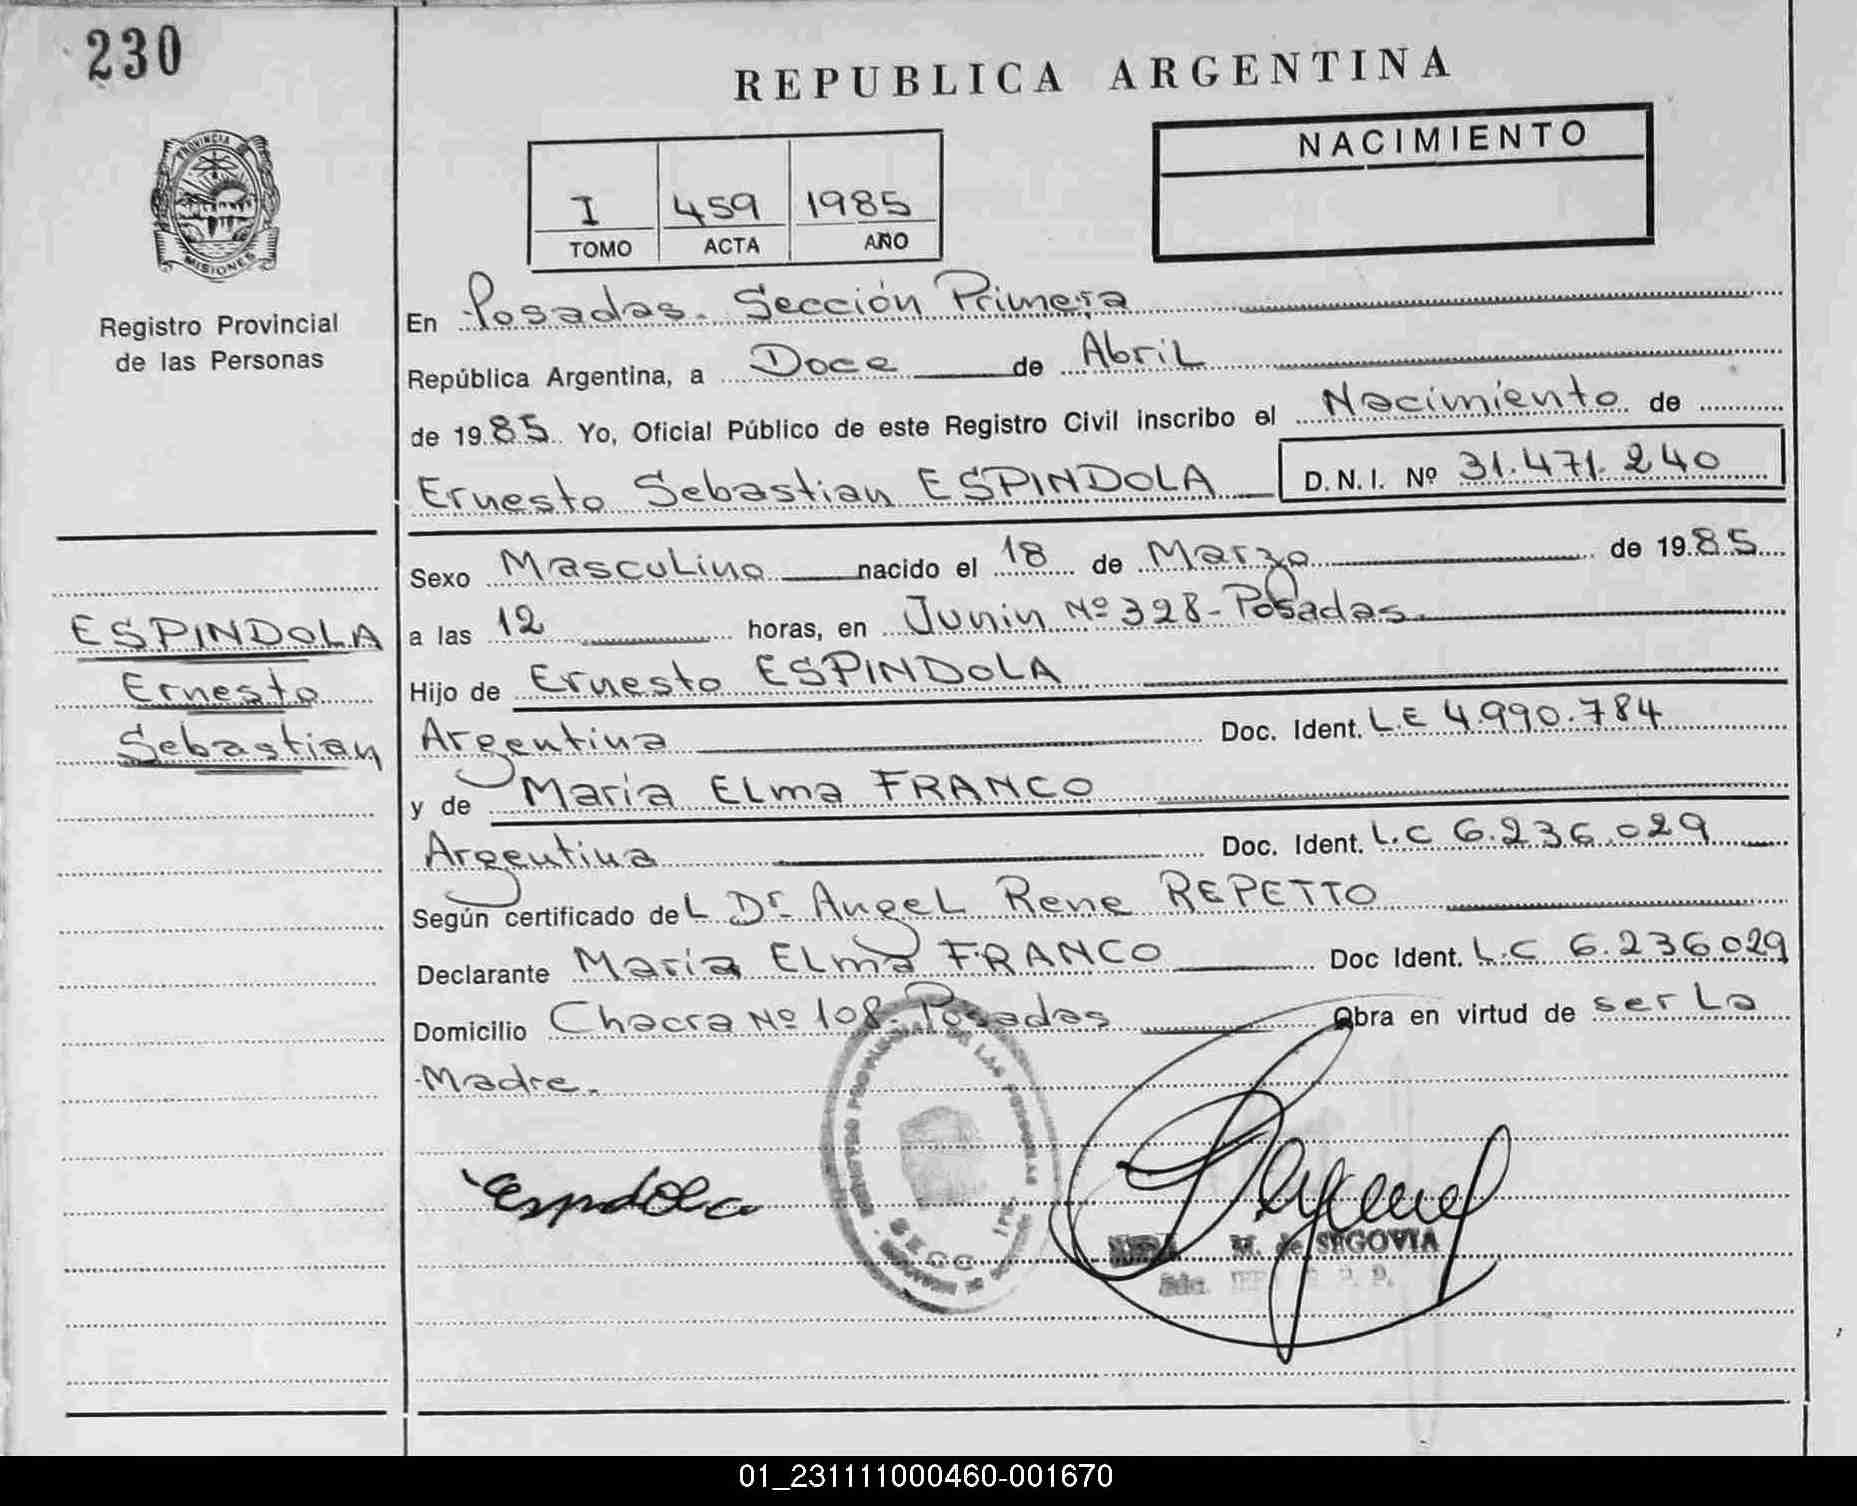 230
REPUBLICA ARGENTINA
NACIMIENTO
I 459 1985
TOMO ACTA AÑO
PROVINCIA
MISIONES
Registro Provincial
de las Personas
En Posadas. Sección Primera
República Argentina, a Doce de Abril
de 1985 Yo, Oficial Público de este Registro Civil inscribo el Nacimiento de
Ernesto Sebastian ESPINDOLA D.N.I. Nº 31.471.240
Sexo Masculino nacido el 18 de Marzo de 1985
a las 12 horas, en Junin Nº 328-Posadas.
Hijo de Ernesto ESPINDOLA
Argentina Doc. Ident. L.E 4.990.784
y de Maria Elma FRANCO
Argentina Doc. Ident. L.C 6.236.029
Según certificado del Dr. Angel Rene REPETTO
Declarante Maria Elma FRANCO Doc Ident. L.C 6.236029
Domicilio Chacra Nº 108. Posadas Obra en virtud de ser la
Madre.
ESPINDOLA
Ernesto
Sebastian
DE LAS PERSONAS
SECC. 1ra.
M. de SEGOVIA
01_231111000460-001670